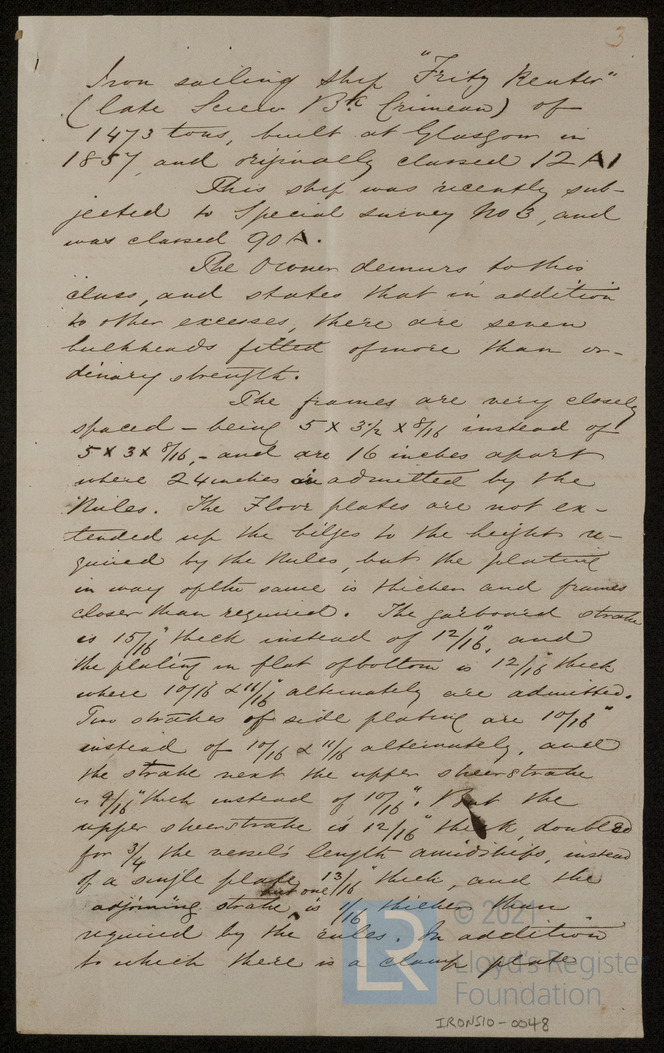 3
Iron sailing ship "Fritz Reuter"
(late Screw Bk Crimean) of
1473 tons, built at Glasgow in
1857, and originally classed 12 A1
This ship was recently sub-
jected to Special survey No 3, and
was classed 90 A.
The Owner demurs to this
class, and states that in addition
to other excesses, there are seven
bulkheads fitted of more than or-
dinary strength.
The frames are very closely
spaced - being 5 x 3 1/2 x 8/16 instead of
5 x 3 x 8/16, - and are 16 inches apart
where 24 inches is admitted by the
Rules. The Floor plates are not ex-
tended up the bilges to the height re-
quired by the Rules, but the plating
in way of the same is thicker and frames
closer than required. The garboard strake
is 15/16" thick instead of 12/16", and
the plating in flat of bottom is 12/16" thick
where 10/16 & 11/16" alternately are admitted.
Two strakes of side plating are 10/16"
instead of 10/16 & 11/16 alternately, and
the strake next the upper sheerstrake
is 9/16" thick instead of 10/16". But the
upper sheerstrake is 12/16" thick, doubled
for 3/4 the vessel's length amidships, instead
of a single plate 13/16" thick, and the
adjoining strake but one is 1/16 thicker than
required by the rules. In addition
to which there is a clamp plate
© 2021
LR
Lloyd's Register
Foundation
IRONS10-0048